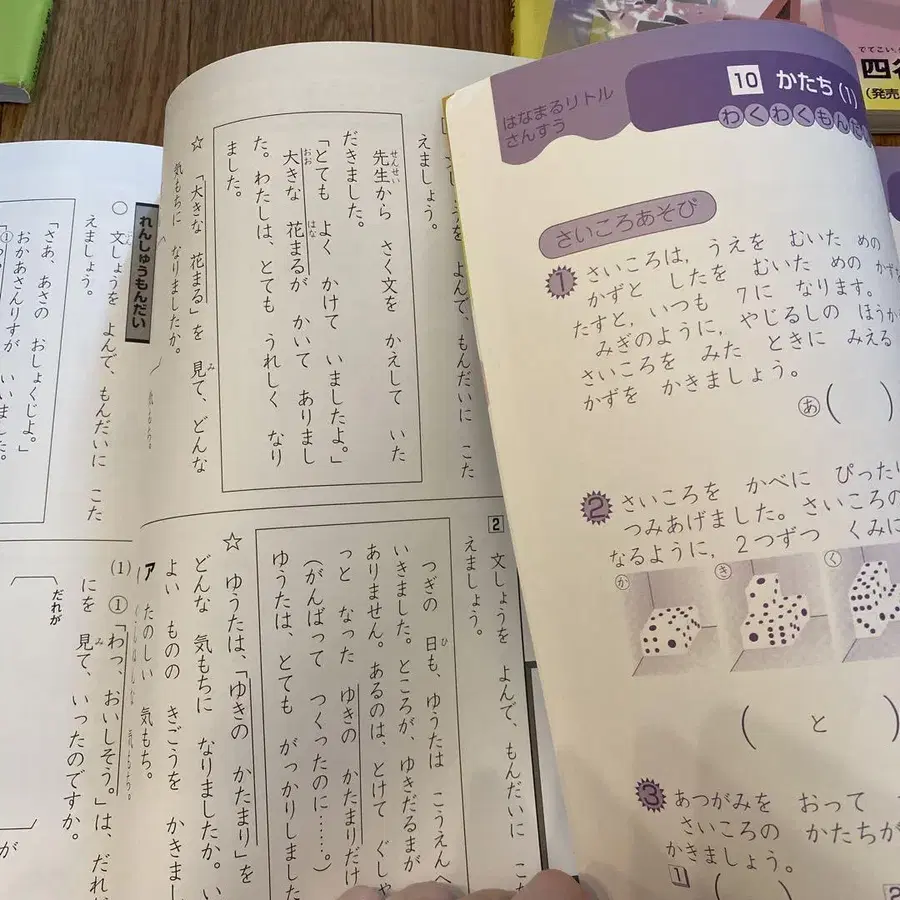 でてこい
四
(発売
はなまるリトル
さんすう
10 かたち(1)
わくわくもんだい
さいころあそび
1 さいころは, うえを むいた めの かず
かずと したを むいた めの かずを
たすと, いつも 7に なります。
みぎのように, やじるしの ほうか
さいころを みた ときに みえる
かずを かきましょう。
あ( )
2 さいころを かべに ぴったり
つみあげました。さいころの
なるように, 2つずつ くみに
か
き
く
( と )
3 あつがみを おって
さいころの かたちが
かきましょう。
1
2
よんで、もんだいに こた
えましょう。
先生から さく文を かえして いた
せんせい
だきました。
「とても よく かけて いましたよ。」
大きな 花まるが かいて ありまし
おお はな
た。わたしは、とても うれしく なり
ました。
☆ 「大きな 花まる」を 見て、どんな
み
気もちに なりましたか。
気もち。
2 文しょうを よんで、もんだいに こた
えましょう。
つぎの 日も、ゆうたは こうえんへ
ひ
いきました。ところが、ゆきだるまが
ありません。あるのは、とけて ぐしゃ
っと なった ゆきの かたまりだけ
(がんばって つくったのに……。)
ゆうたは、とても がっかりしました
☆ ゆうたは、「ゆきの かたまり」を
どんな 気もちに なりましたか。
よい ものの きごうを かきまし
ア たのしい 気もち。
れんしゅうもんだい
○ 文しょうを よんで、もんだいに こた
ぶん
えましょう。
「さあ、あさの おしょくじよ。」
おかあさんりすが いいました。
①
(1) ①「わっ、おいしそう。」は、だれ
にを 見て、いったのですか。
み
だれが
が